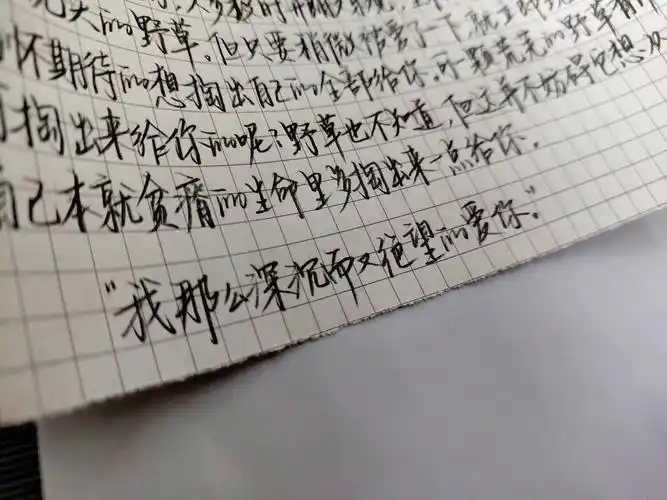 的野草。但只要稍微你爱了一下,就立即
怀期待的想掏出自己的全部给你。可一颗荒芜的野草有
掏出来给你的呢?野草也不知道,但这并不妨碍它想从
自己本就贫瘠的生命里多掏出来一点给你.
"我那么深沉而又绝望的爱你."